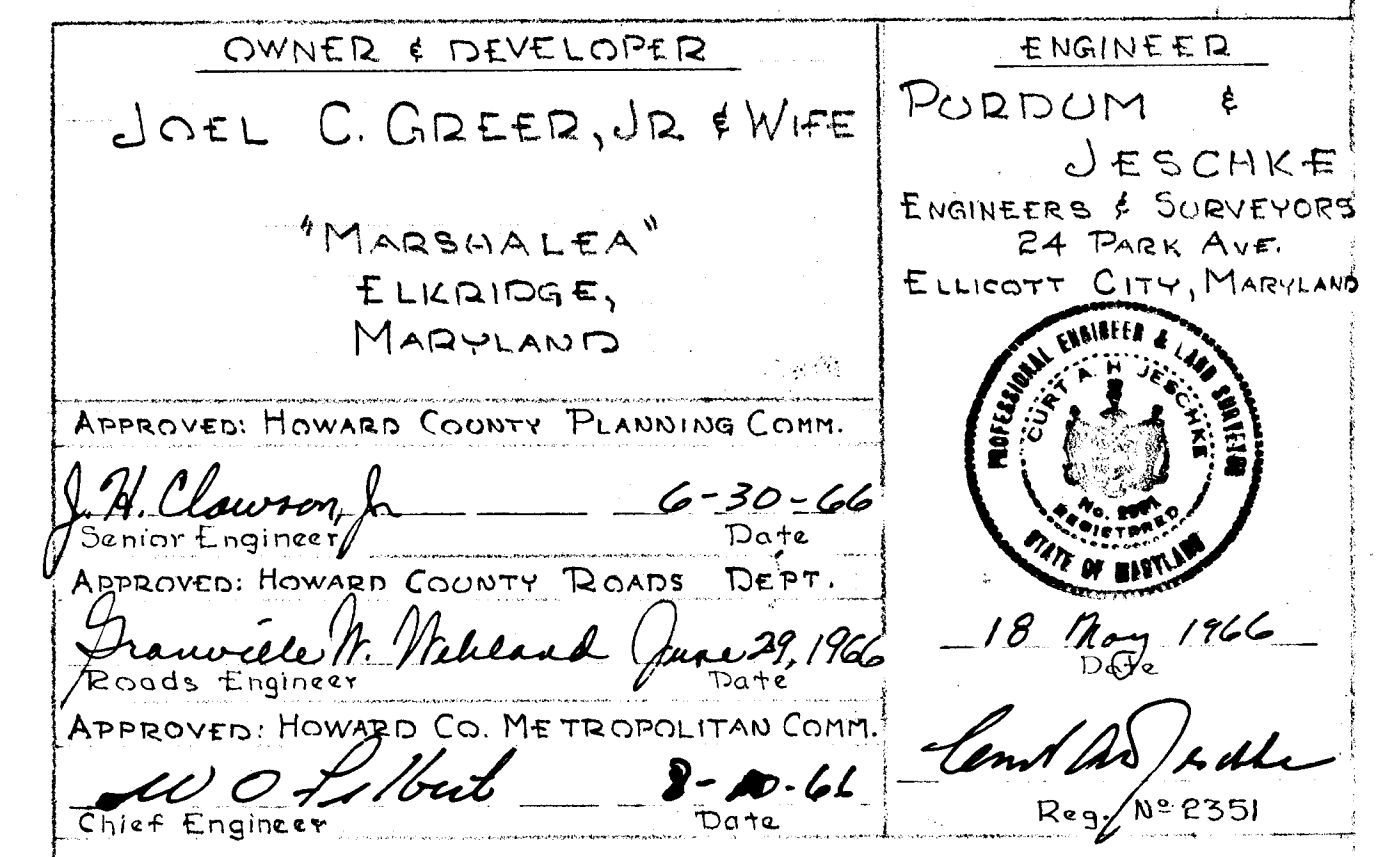 OWNER & DEVELOPER
JOEL C. GREER, JR. & WIFE
"MARSHALEA"
ELKRIDGE,
MARYLAND
APPROVED: HOWARD COUNTY PLANNING COMM.
J. H. Clawson, Jr 6-30-66
Senior Engineer Date
APPROVED: HOWARD COUNTY ROADS DEPT.
Granville W. Wehland June 29, 1966
Roads Engineer Date
APPROVED: HOWARD CO. METROPOLITAN COMM.
W O
Chief Engineer Date
ENGINEER
PURDUM &
JESCHKE
ENGINEERS & SURVEYORS
24 PARK AVE.
ELLICOTT CITY, MARYLAND
PROFESSIONAL ENGINEER & LAND SURVEYOR
CURT A. H. JESCHKE
No.
REGISTERED
STATE OF MARYLAND
18 May 1966
Date
Reg. Nº 2351